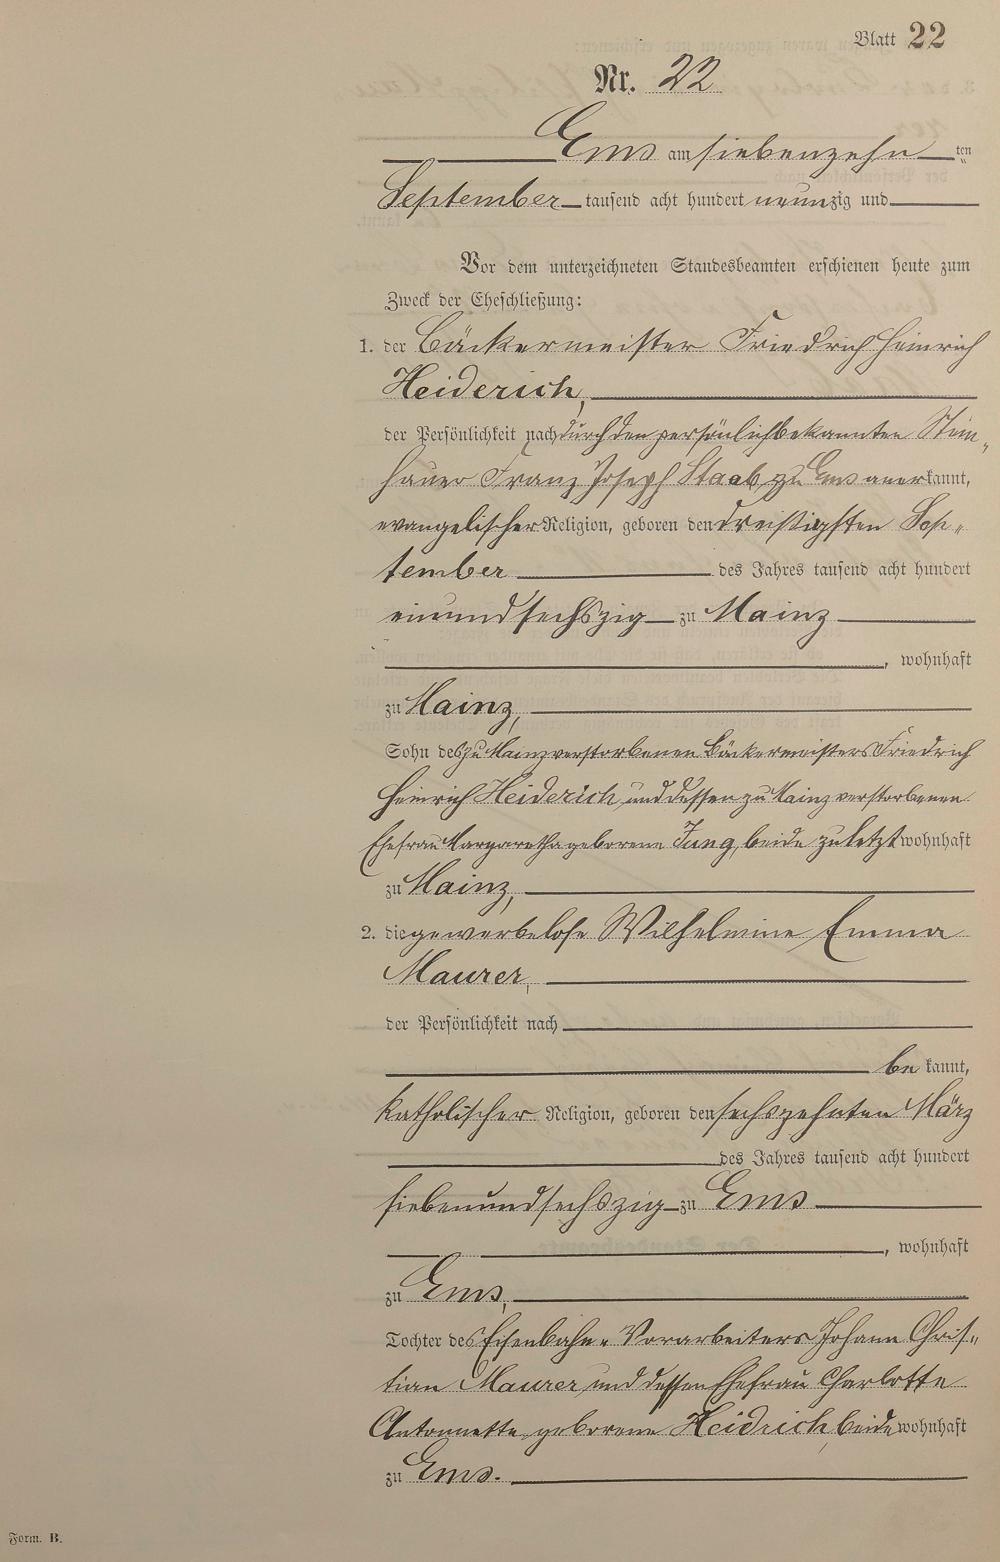 Blatt 22
Nr. 22
Ems am siebenzehn ten
September tausend acht hundert neunzig und
Vor dem unterzeichneten Standesbeamten erschienen heute zum
Zweck der Eheschließung:
1. der Bäckermeister Friedrich Heinrich
Heiderich,
der Persönlichkeit nach durch den persönlich bekannten Stein-
hauer Franz Joseph Staab, zu Ems anerkannt,
evangelischer Religion, geboren den dreißigsten Sep-
tember des Jahres tausend acht hundert
einundsechszig zu Mainz
, wohnhaft
zu Mainz,
Sohn des zu Mainz verstorbenen Bäckermeisters Friedrich
Heinrich Heiderich, und dessen zu Mainz verstorbenen
Ehefrau Margaretha geborene Jung, beide zuletzt wohnhaft
zu Mainz,
2. die gewerbelose Wilhelmine Emma
Maurer,
der Persönlichkeit nach
be kannt,
katholischer Religion, geboren den sechszehnten März
des Jahres tausend acht hundert
siebenundsechszig zu Ems
, wohnhaft
zu Ems,
Tochter des Eisenbahn-Vorarbeiters Johann Chris-
tian Maurer und dessen Ehefrau Charlotte
Antonnette geborene Heidrich, beide wohnhaft
zu Ems.
Form. B.